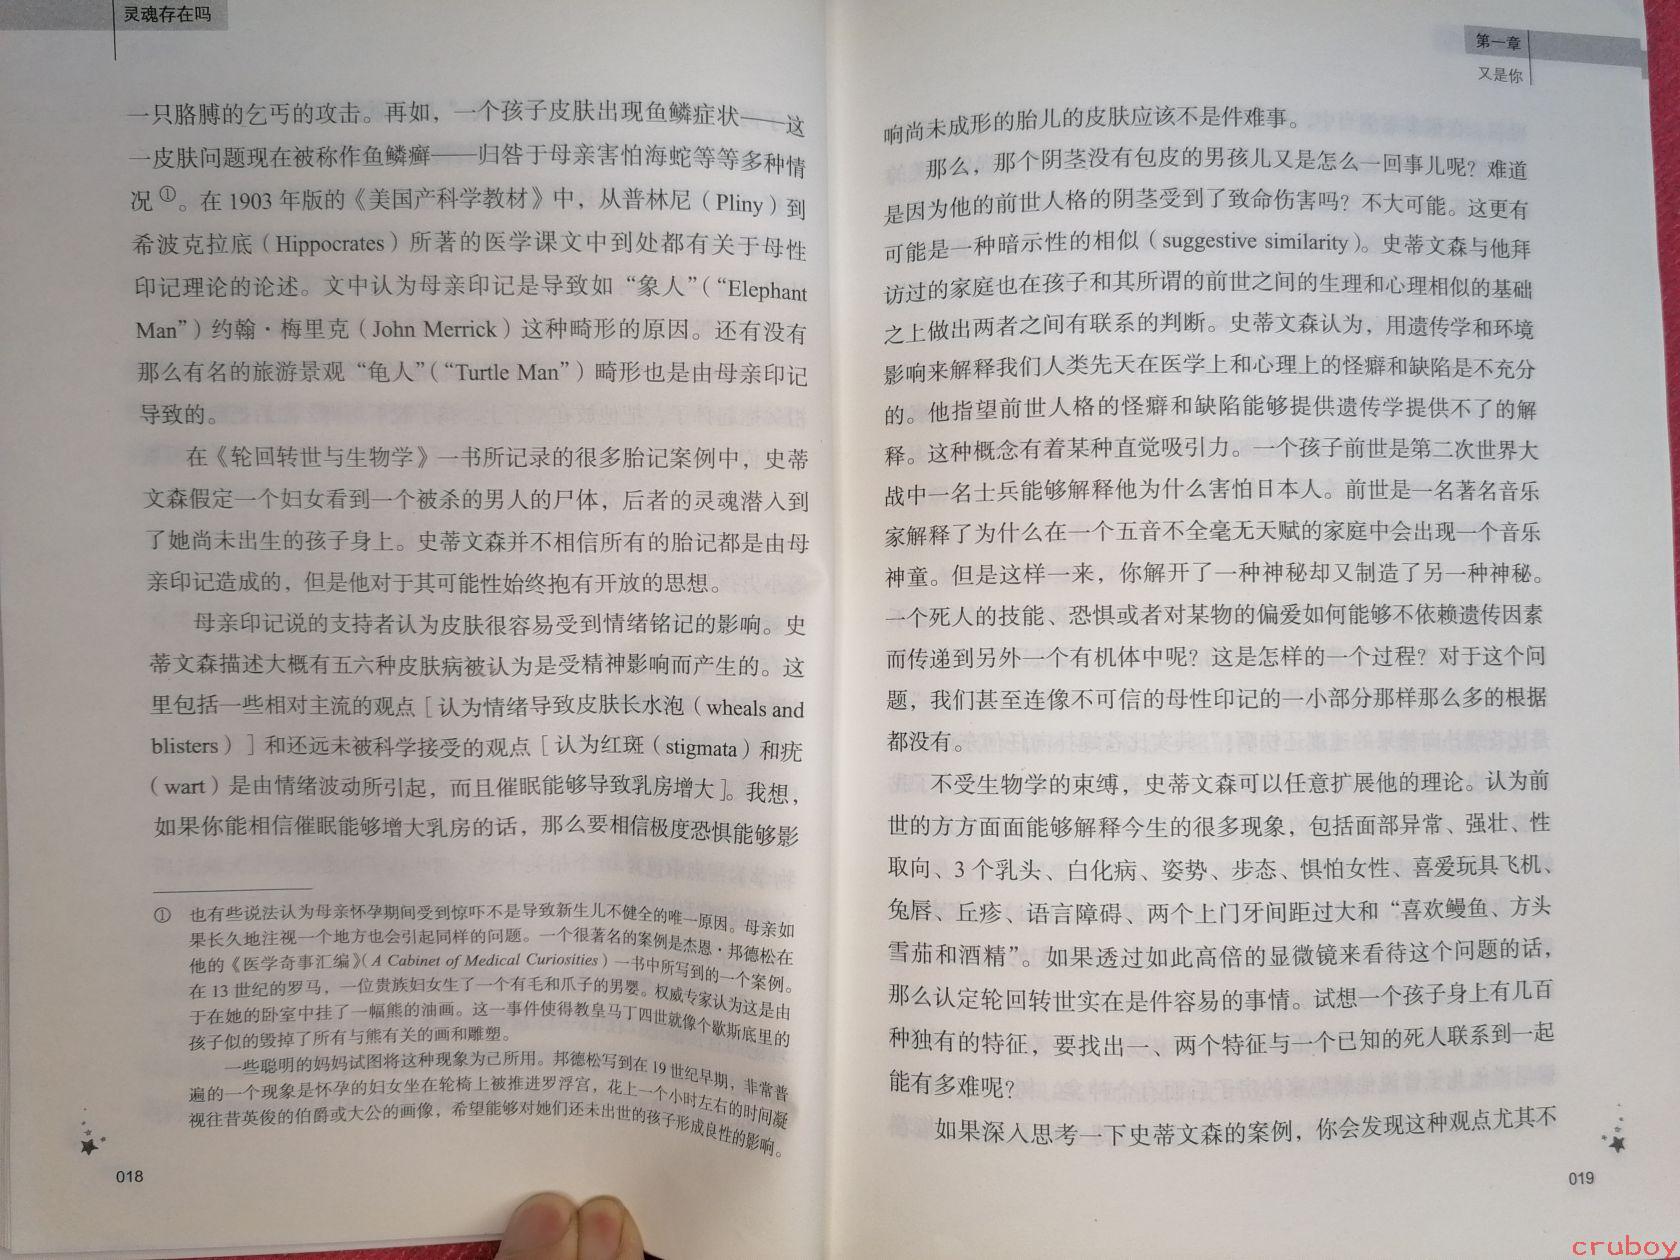 灵魂存在吗
一只胳膊的乞丐的攻击。再如，一个孩子皮肤出现鱼鳞症状——这
一皮肤问题现在被称作鱼鳞癣——归咎于母亲害怕海蛇等等多种情
况①。在1903年版的《美国产科学教材》中，从普林尼（Pliny）到
希波克拉底（Hippocrates）所著的医学课文中到处都有关于母性
印记理论的论述。文中认为母亲印记是导致如“象人”（“Elephant
Man”）约翰·梅里克（John Merrick）这种畸形的原因。还有没有
那么有名的旅游景观“龟人”（“Turtle Man”）畸形也是由母亲印记
导致的。
在《轮回转世与生物学》一书所记录的很多胎记案例中，史蒂
文森假定一个妇女看到一个被杀的男人的尸体，后者的灵魂潜入到
了她尚未出生的孩子身上。史蒂文森并不相信所有的胎记都是由母
亲印记造成的，但是他对于其可能性始终抱有开放的思想。
母亲印记说的支持者认为皮肤很容易受到情绪铭记的影响。史
蒂文森描述大概有五六种皮肤病被认为是受精神影响而产生的。这
里包括一些相对主流的观点［认为情绪导致皮肤长水泡（wheals and
blisters）］和还远未被科学接受的观点［认为红斑（stigmata）和疣
（wart）是由情绪波动所引起，而且催眠能够导致乳房增大］。我想，
如果你能相信催眠能够增大乳房的话，那么要相信极度恐惧能够影
① 也有些说法认为母亲怀孕期间受到惊吓不是导致新生儿不健全的唯一原因。母亲如
果长久地注视一个地方也会引起同样的问题。一个很著名的案例是杰恩·邦德松在
他的《医学奇事汇编》（A Cabinet of Medical Curiosities）一书中所写到的一个案例。
在13世纪的罗马，一位贵族妇女生了一个有毛和爪子的男婴。权威专家认为这是由
于在她的卧室中挂了一幅熊的油画。这一事件使得教皇马丁四世就像个歇斯底里的
孩子似的毁掉了所有与熊有关的画和雕塑。
一些聪明的妈妈试图将这种现象为己所用。邦德松写到在19世纪早期，非常普
遍的一个现象是怀孕的妇女坐在轮椅上被推进罗浮宫，花上一个小时左右的时间凝
视往昔英俊的伯爵或大公的画像，希望能够对她们还未出世的孩子形成良性的影响。
018
第一章
又是你
响尚未成形的胎儿的皮肤应该不是件难事。
那么，那个阴茎没有包皮的男孩儿又是怎么一回事儿呢？难道
是因为他的前世人格的阴茎受到了致命伤害吗？不大可能。这更有
可能是一种暗示性的相似（suggestive similarity）。史蒂文森与他拜
访过的家庭也在孩子和其所谓的前世之间的生理和心理相似的基础
之上做出两者之间有联系的判断。史蒂文森认为，用遗传学和环境
影响来解释我们人类先天在医学上和心理上的怪癖和缺陷是不充分
的。他指望前世人格的怪癖和缺陷能够提供遗传学提供不了的解
释。这种概念有着某种直觉吸引力。一个孩子前世是第二次世界大
战中一名士兵能够解释他为什么害怕日本人。前世是一名著名音乐
家解释了为什么在一个五音不全毫无天赋的家庭中会出现一个音乐
神童。但是这样一来，你解开了一种神秘却又制造了另一种神秘。
一个死人的技能、恐惧或者对某物的偏爱如何能够不依赖遗传因素
而传递到另外一个有机体中呢？这是怎样的一个过程？对于这个问
题，我们甚至连像不可信的母性印记的一小部分那样那么多的根据
都没有。
不受生物学的束缚，史蒂文森可以任意扩展他的理论。认为前
世的方方面面能够解释今生的很多现象，包括面部异常、强壮、性
取向、3个乳头、白化病、姿势、步态、惧怕女性、喜爱玩具飞机、
兔唇、丘疹、语言障碍、两个上门牙间距过大和“喜欢鳗鱼、方头
雪茄和酒精”。如果透过如此高倍的显微镜来看待这个问题的话，
那么认定轮回转世实在是件容易的事情。试想一个孩子身上有几百
种独有的特征，要找出一、两个特征与一个已知的死人联系到一起
能有多难呢？
如果深入思考一下史蒂文森的案例，你会发现这种观点尤其不
019
cruboy